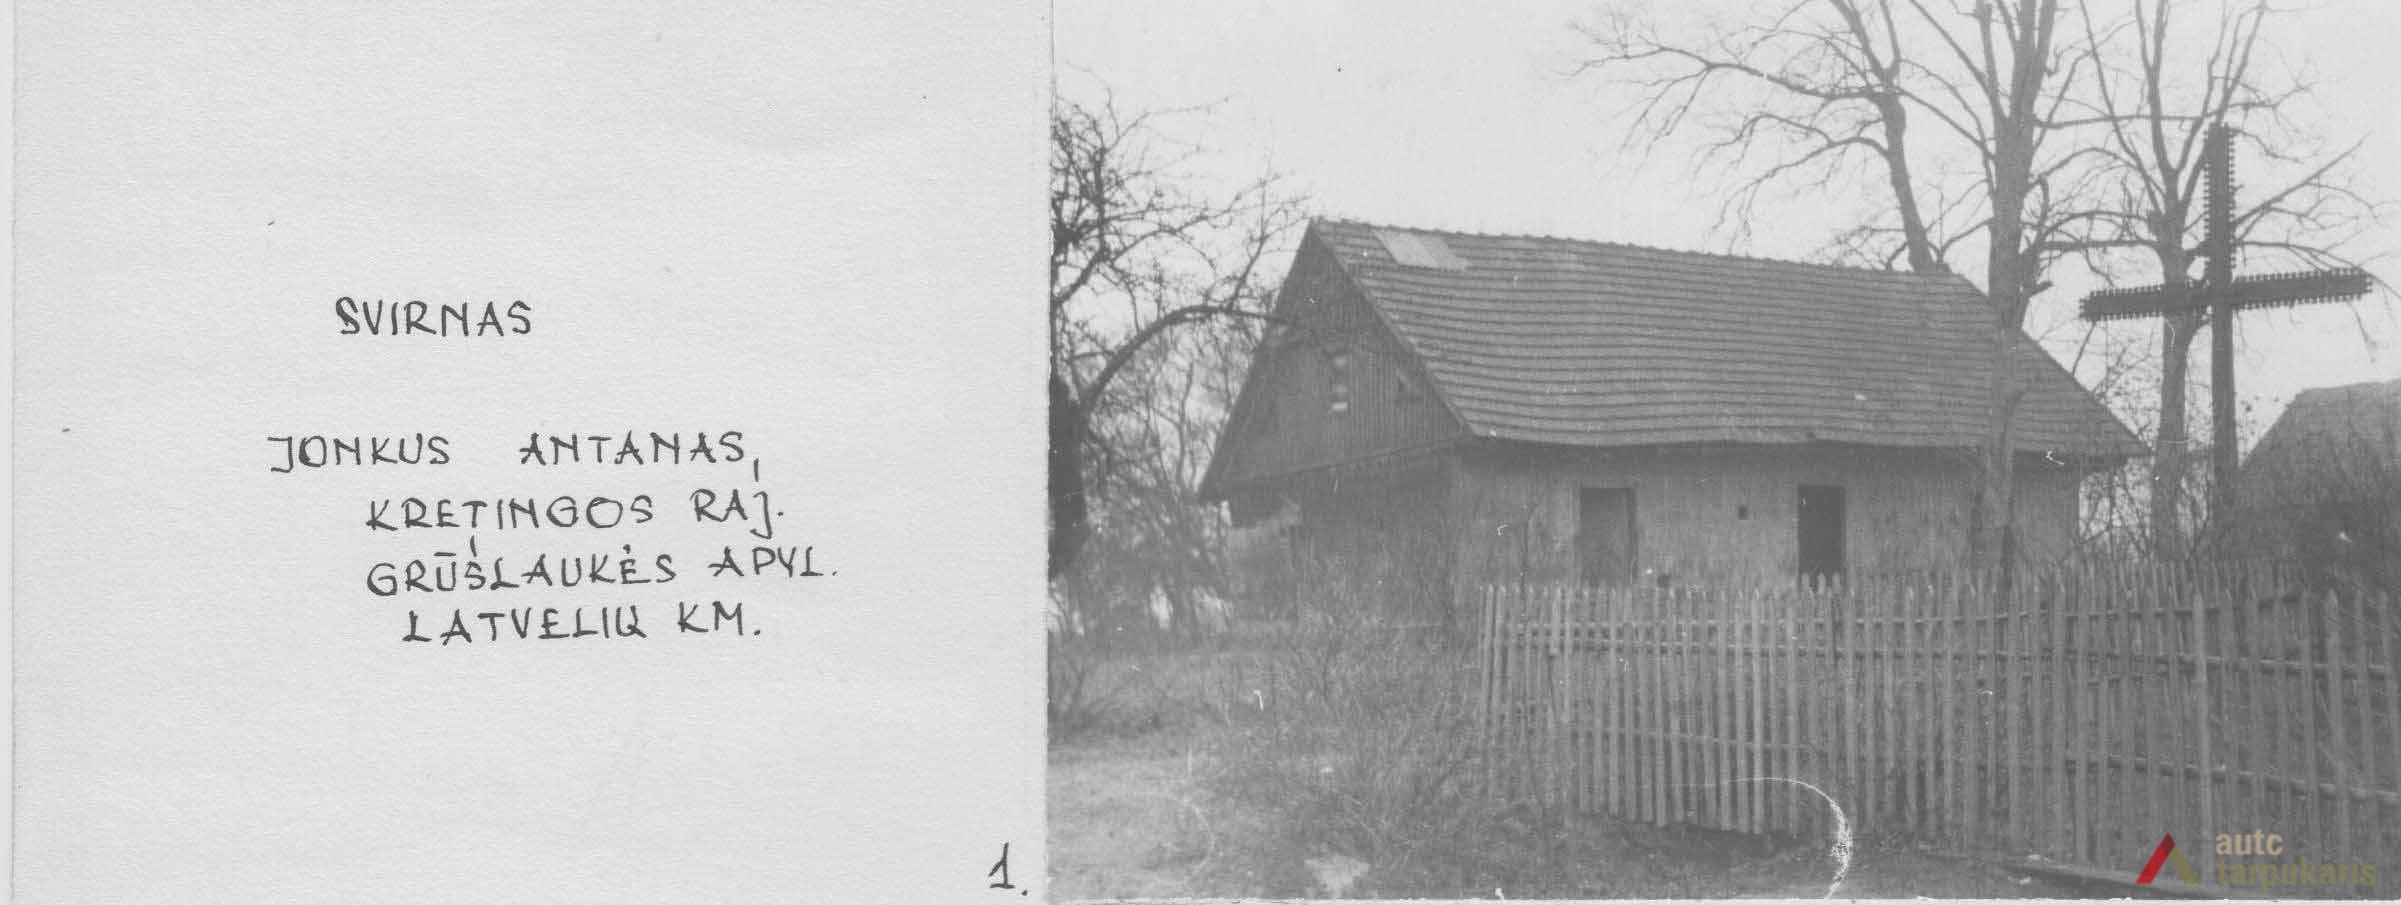 SVIRNAS
JONKUS ANTANAS,
KRETINGOS RAJ.
GRŪŠLAUKĖS APYL.
LATVELIŲ KM.
1.
autc
tarpukaris